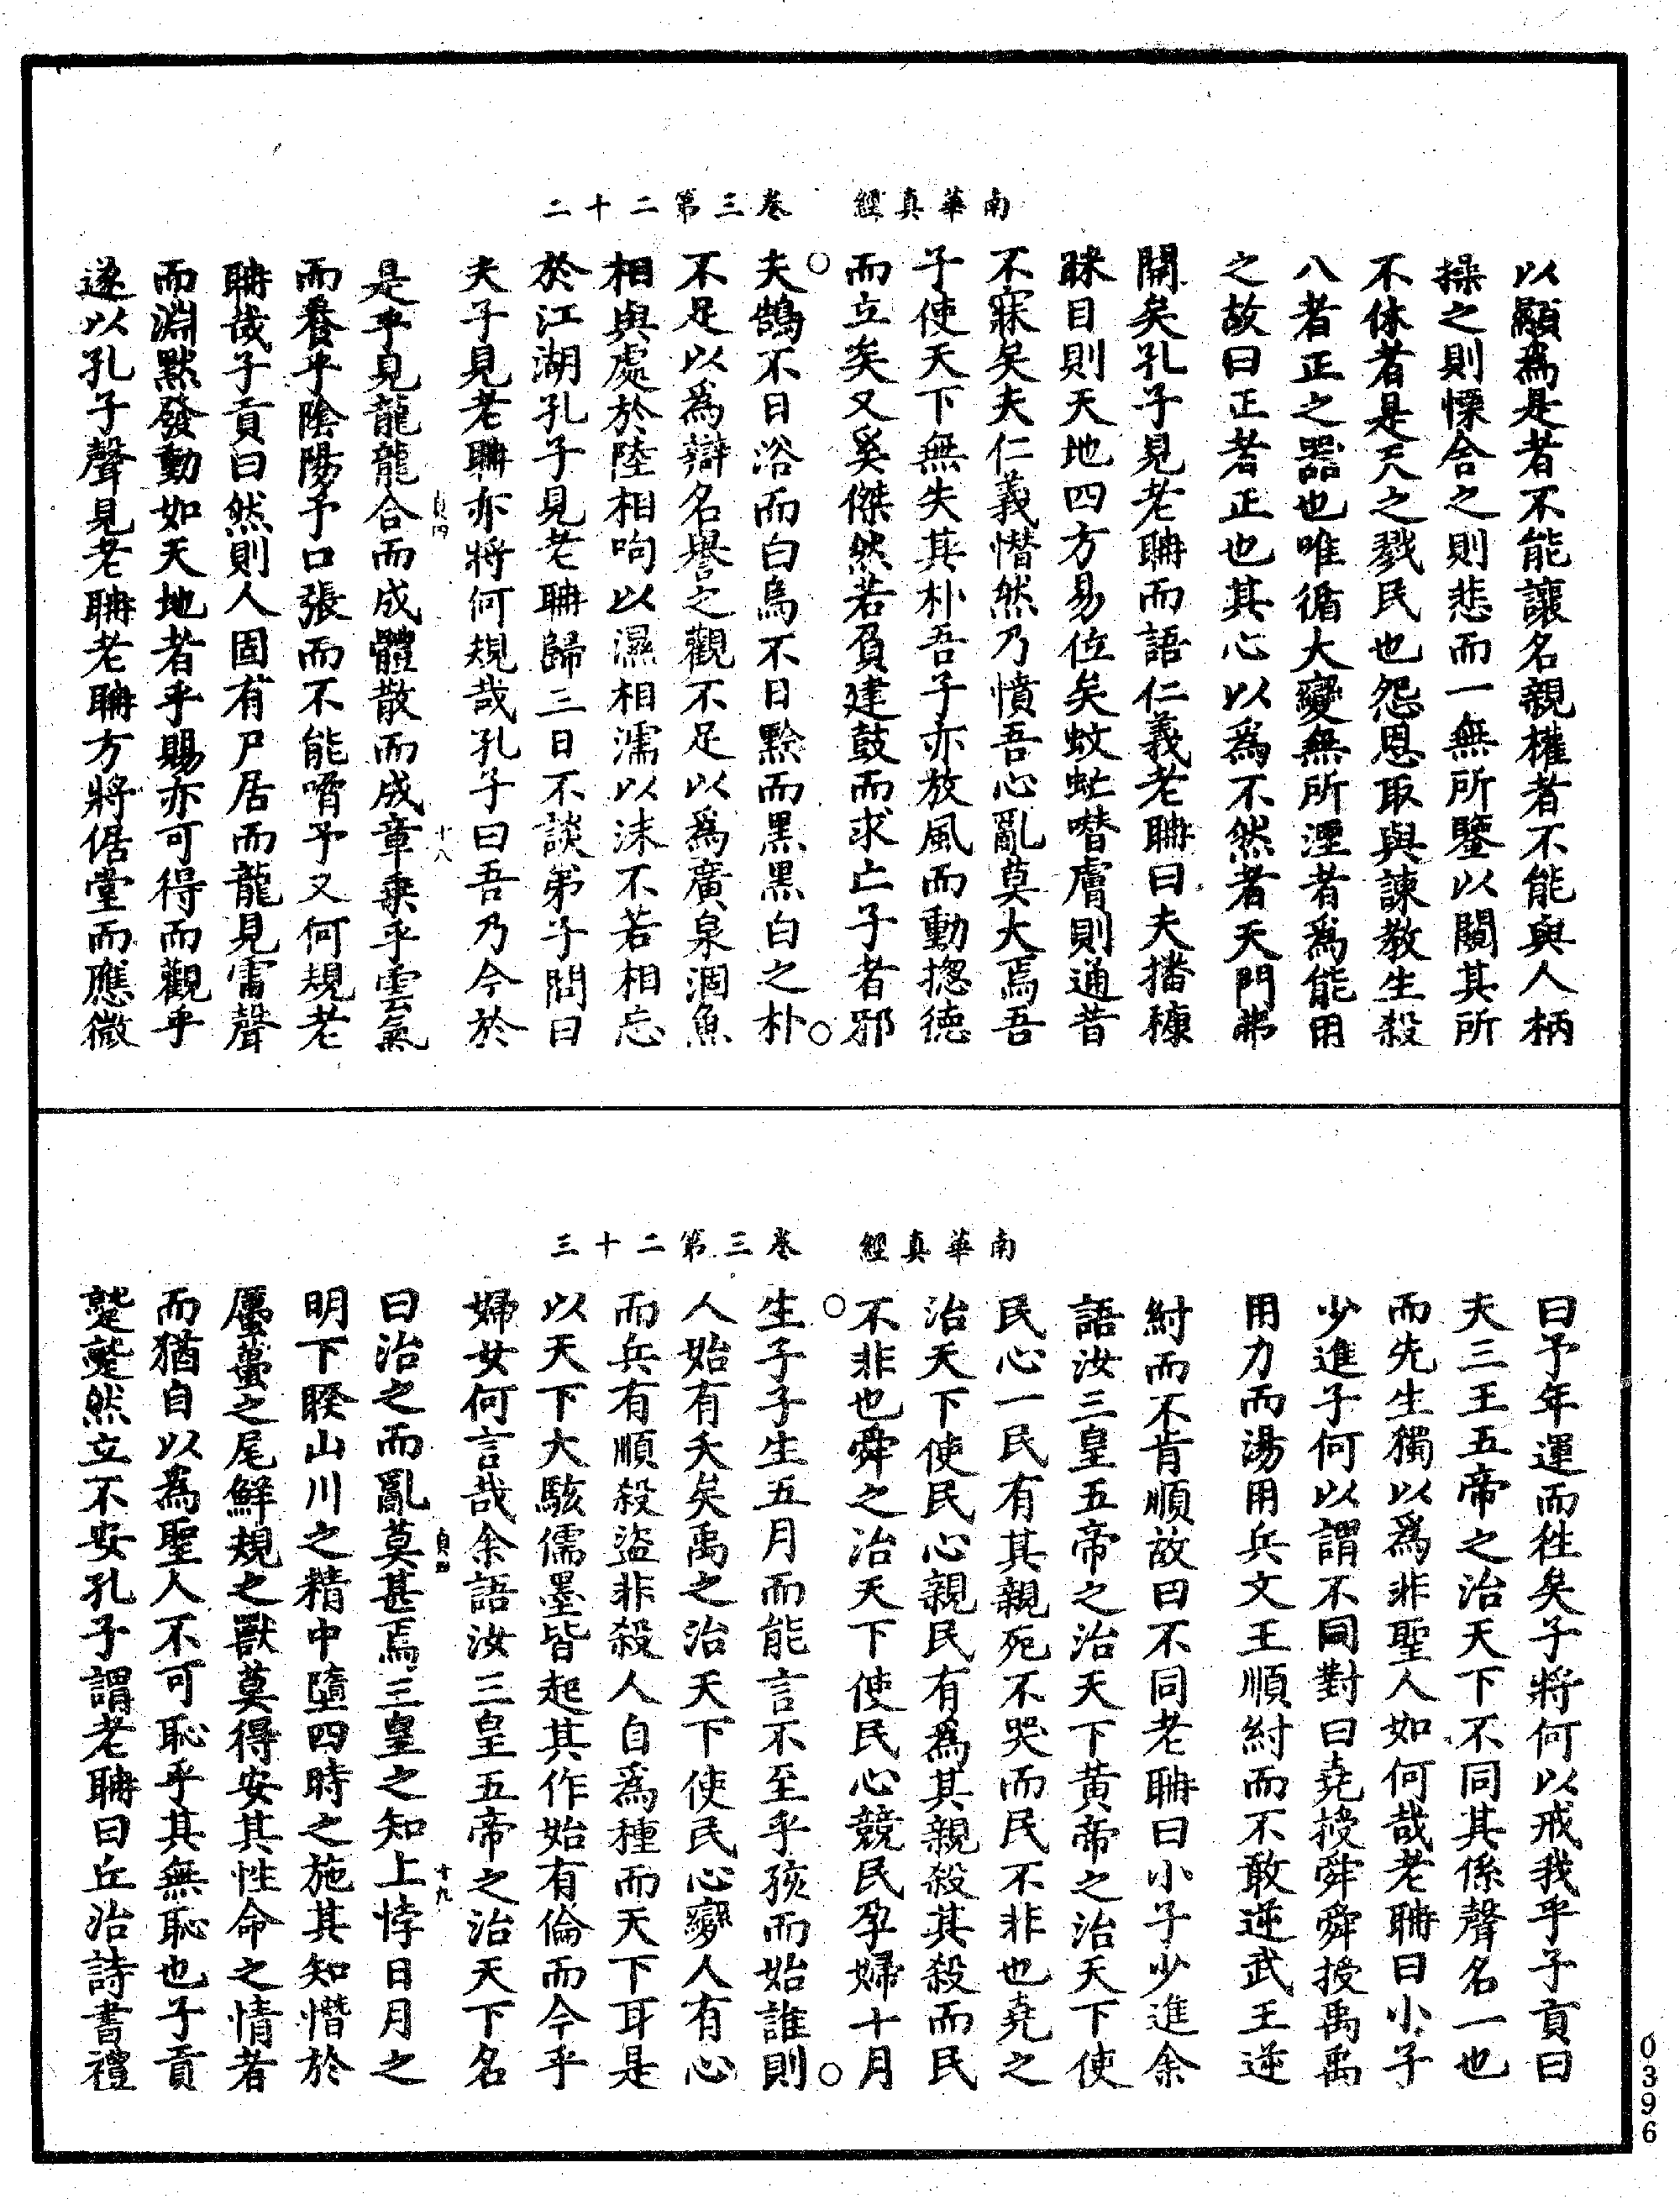 南華真經　卷三第二十二
以顯為是者不能讓名親權者不能與人柄
操之則慄舍之則悲而一無所鑒以闚其所
不休者是天之戮民也怨恩取與諫教生殺
八者正之器也唯循大變無所湮者為能用
之故曰正者正也其心以為不然者天門弗
開矣孔子見老聃而語仁義老聃曰夫播穅
眯目則天地四方易位矣蚊虻噆膚則通昔
不寐矣夫仁義憯然乃憤吾心亂莫大焉吾
子使天下無失其朴吾子亦放風而動揔德
而立矣又奚傑然若負建鼓而求亡子者邪
夫鵠不日浴而白烏不日黔而黑黑白之朴
不足以為辯名譽之觀不足以為廣泉涸魚
相與處於陸相呴以濕相濡以沫不若相忘
於江湖孔子見老聃歸三日不談弟子問曰
夫子見老聃亦將何規哉孔子曰吾乃今於
貞四　十八
是乎見龍龍合而成體散而成章乘乎雲氣
而養乎陰陽予口張而不能嗋予又何規老
聃哉子貢曰然則人固有尸居而龍見雷聲
而淵默發動如天地者乎賜亦可得而觀乎
遂以孔子聲見老聃老聃方將倨堂而應微
南華真經　卷三第二十三
曰予年運而徃矣子將何以戒我乎子貢曰
夫三王五帝之治天下不同其係聲名一也
而先生獨以為非聖人如何哉老聃曰小子
少進子何以謂不同對曰堯授舜舜授禹禹
用力而湯用兵文王順紂而不敢逆武王逆
紂而不肯順故曰不同老聃曰小子少進余
語汝三皇五帝之治天下黃帝之治天下使
民心一民有其親死不哭而民不非也堯之
治天下使民心親民有為其親殺其殺而民
不非也舜之治天下使民心競民孕婦十月
生子子生五月而能言不至乎孩而始誰則
人始有夭矣禹之治天下使民心變人有心
而兵有順殺盜非殺人自為種而天下耳是
以天下大駭儒墨皆起其作始有倫而今乎
婦女何言哉余語汝三皇五帝之治天下名
貞四　十九
曰治之而亂莫甚焉三皇之知上悖日月之
明下睽山川之精中墮四時之施其知憯於
厲蠆之尾鮮規之獸莫得安其性命之情者
而猶自以為聖人不可恥乎其無恥也子貢
蹵蹵然立不安孔子謂老聃曰丘治詩書禮
0396